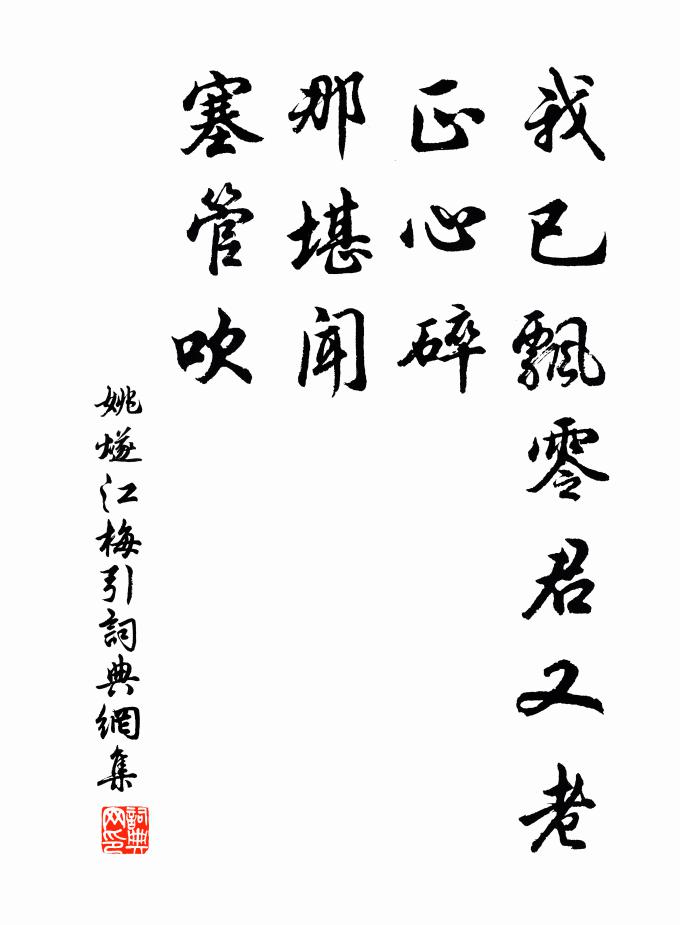 我已飄零君又老
正心碎
那堪聞
塞管吹
姚燧江梅引詞典網集
詞典
网印